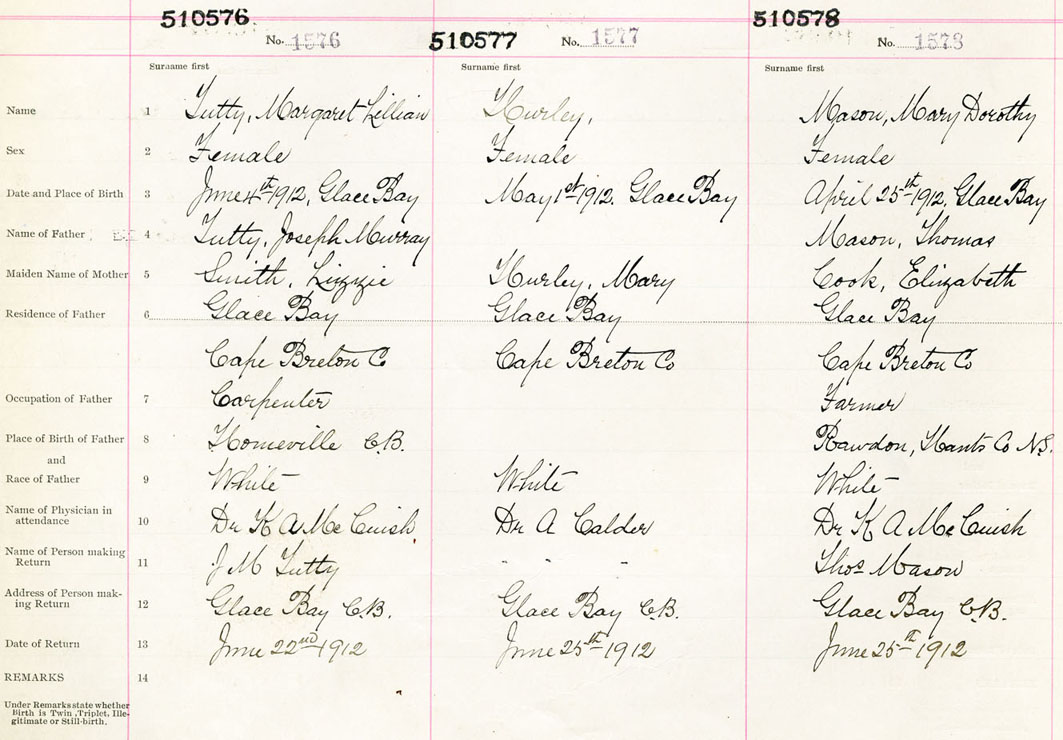 510576 510577 510578
No. 1576 No. 1577 No. 1578
Surname first Surname first Surname first
Name 1 Tutty, Margaret Lillian Hurley, Mason, Mary Dorothy
Sex 2 Female Female Female
Date and Place of Birth 3 June 4th 1912, Glace Bay May 1st 1912, Glace Bay April 25th 1912, Glace Bay
Name of Father 4 Tutty, Joseph Murray Mason, Thomas
Maiden Name of Mother 5 Smith, Lizzie Hurley, Mary Cook, Elizabeth
Residence of Father 6 Glace Bay Glace Bay Glace Bay
Cape Breton Co Cape Breton Co Cape Breton Co
Occupation of Father 7 Carpenter Farmer
Place of Birth of Father 8 Homeville C.B. Rawdon, Hants Co N.S.
and
Race of Father 9 White White White
Name of Physician in
attendance 10 Dr K A McCuish Dr A Calder Dr K A McCuish
Name of Person making
Return 11 J M Tutty " " " Thos Mason
Address of Person mak-
ing Return 12 Glace Bay C.B. Glace Bay C.B. Glace Bay C.B.
Date of Return 13 June 22nd 1912 June 25th 1912 June 25th 1912
REMARKS 14
Under Remarks state whether
Birth is Twin, Triplet, Ille-
gitimate or Still-birth.